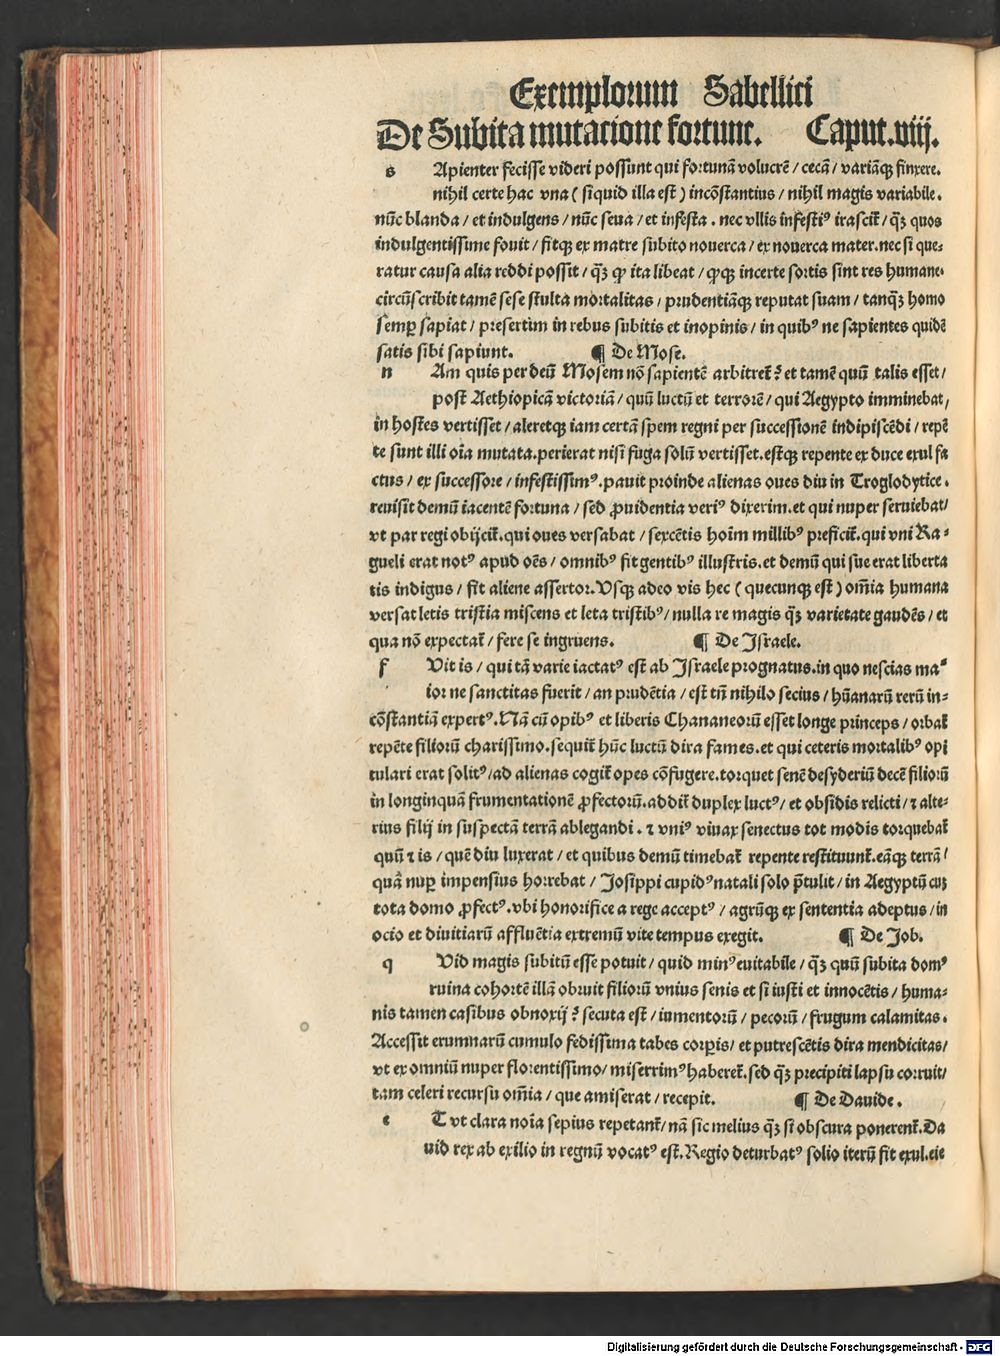 Exemplorum Sabellici
De Subita mutacione fortune. Caput.viij.
s Apienter fecisse videri possunt qui fortunã volucrẽ / cecã / variãq́ꝫ finxere.
nihil certe hac vna ( siquid illa est ) incõstantius / nihil magis variabile.
nũc blanda / et indulgens / nũc seua / et infesta . nec vllis infestiꝰ irascit᷑ / q̃ꝫ quos
indulgentissime fouit / fitqꝫ ex matre subito nouerca / ex nouerca mater.nec si que⸗
ratur causa alia reddi possit / q̃ꝫ ꝙ ita libeat / ꝙqꝫ incerte sortis sint res humane.
circũscribit tamẽ sese stulta mortalitas / prudentiãqꝫ reputat suam / tanq̃ꝫ homo
semꝑ sapiat / presertim in rebus subitis et inopinis / in quibꝰ ne sapientes quidẽ
satis sibi sapiunt. ¶ De Mose.
n Am quis per deũ Mosem nõ sapientẽ arbitret᷑? et tamẽ quũ talis esset /
post Aethiopicã victoriã / quũ luctũ et terrorẽ / qui Aegypto imminebat /
in hostes vertisset / aleretqꝫ iam certã spem regni per successionẽ indipiscẽdi / repẽ
te sunt illi oĩa mutata.perierat nisi fuga solũ vertisset.estqꝫ repente ex duce exul fa
ctus / ex successore / infestissimꝰ.pauit proinde alienas oues diu in Troglodytice.
reuisit demũ iacentẽ fortuna / sed ꝓuidentia veriꝰ dixerim.et qui nuper seruiebat/
vt par regi obijcit᷑.qui oues versabat / sexcẽtis hoĩm millibꝰ preficit᷑.qui vni Ra⸗
gueli erat notꝰ apud oẽs / omnibꝰ fit gentibꝰ illustris.et demũ qui sue erat liberta
tis indigus / fit aliene assertor.Vsqꝫ adeo vis hec ( quecunqꝫ est ) om̃ia humana
versat letis tristia miscens et leta tristibꝰ / nulla re magis q̃ꝫ varietate gaudẽs / et
qua nõ expectat᷑ / fere se ingruens. ¶ De Israele.
f Vit is / qui tã varie iactatꝰ est ab Israele prognatus.in quo nescias ma⸗
ior ne sanctitas fuerit / an prudẽtia / est tñ nihilo secius / hũanarũ rerũ in⸗
cõstantiã expertꝰ.Nã cũ opibꝰ et liberis Chananeorũ esset longe princeps / orbat᷑
repẽte filiorũ charissimo.sequit᷑ hũc luctũ dira fames.et qui ceteris mortalibꝰ opi
tulari erat solitꝰ /ad alienas cogit᷑ opes cõfugere.torquet senẽ desyderiũ decẽ filiorũ
in longinquã frumentationẽ ꝓfectorũ.addit᷑ duplex luctꝰ / et obsidis relicti / ⁊ alte⸗
rius filij in suspectã terrã ablegandi . ⁊ vniꝰ viuax senectus tot modis torquebat᷑
quũ ⁊ is / quẽ diu luxerat / et quibus demũ timebat᷑ repente restituunt᷑.eãqꝫ terrã /
quã nuꝑ impensius horrebat / Josippi cupidꝰ natali solo p̃tulit / in Aegyptũ cuꝫ
tota domo ꝓfectꝰ.vbi honorifice a rege acceptꝰ / agrũqꝫ ex sententia adeptus / in
ocio et diuitiarũ affluẽtia extremũ vite tempus exegit. ¶ De Job.
q Vid magis subitũ esse potuit / quid minꝰ euitabile / q̃ꝫ quũ subita domꝰ
ruina cohortẽ illã obruit filiorũ vnius senis et si iusti et innocẽtis / huma⸗
nis tamen casibus obnoxij ? secuta est / iumentorũ / pecorũ / frugum calamitas.
Accessit erumnarũ cumulo fedissima tabes corꝑis / et putrescẽtis dira mendicitas/
vt ex omniũ nuper florentissimo / miserrimꝰ haberet᷑. sed q̃ꝫ precipiti lapsu corruit/
tam celeri recursu om̃ia / que amiserat / recepit. ¶ De Dauide.
e T vt clara noĩa sepius repetant᷑/ nã sic melius q̃ꝫ si obscura ponerent᷑.Da
uid rex ab exilio in regnũ vocatꝰ est.Regio deturbatꝰ solio iterũ fit exul.eie
Digitalisierung gefördert durch die Deutsche Forschungsgemeinschaft - DFG